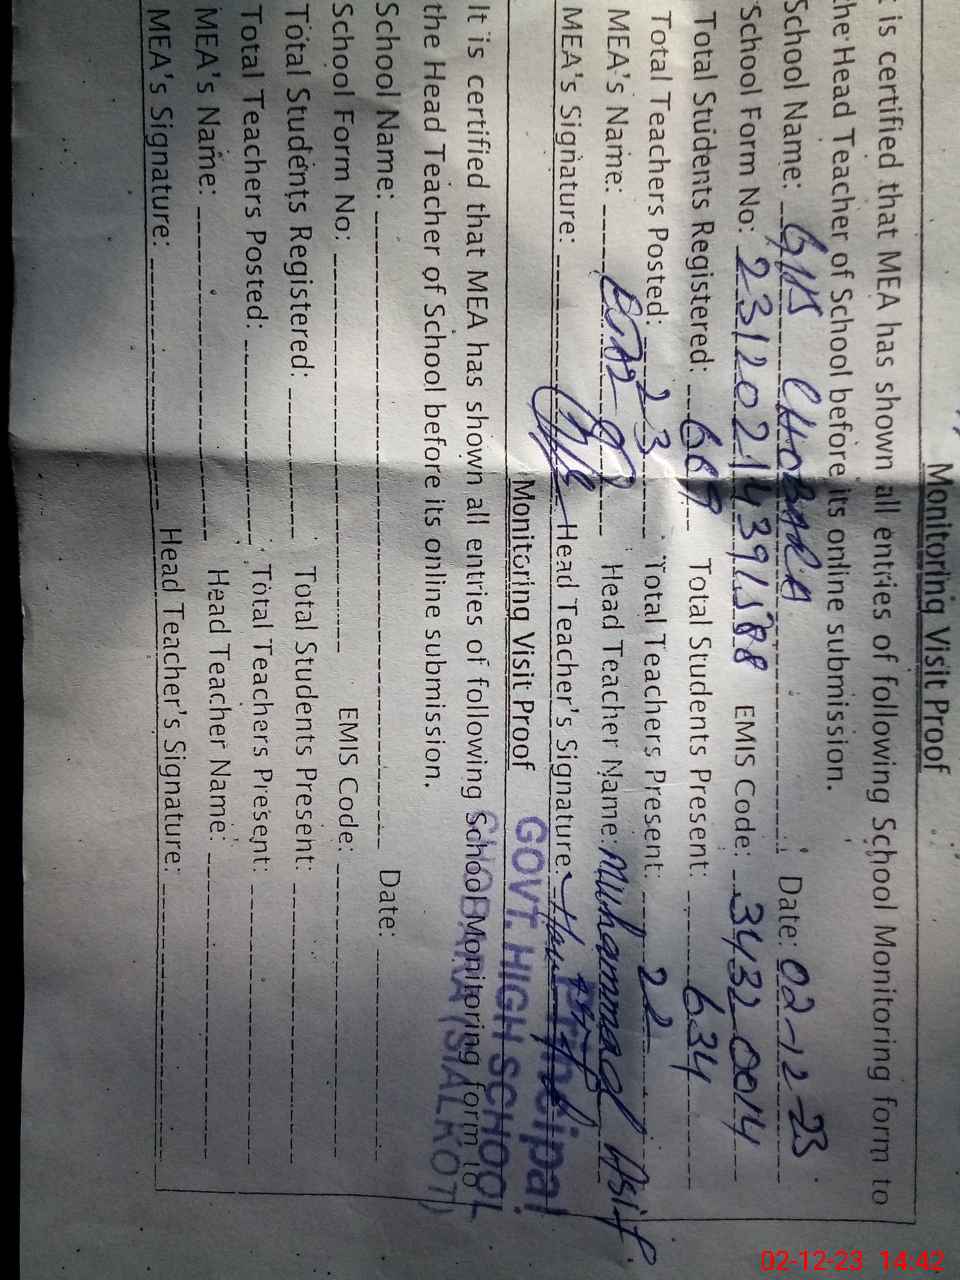 Monitoring Visit Proof
is certified that MEA has shown all entries of following School Monitoring form to
the Head Teacher of School before its online submission.
School Name: GHS CHOBARA Date: 02-12-23
School Form No: EMIS Code: 34320014
Total Students Registered: 669 Total Students Present: 634
Total Teachers Posted: 23 Total Teachers Present: 22
MEA's Name: Head Teacher Name: Muhammad Asif
MEA's Signature: Head Teacher's Signature:
Principal
GOVT. HIGH SCHOOL
CHOBARA (SIALKOT)
Monitoring Visit Proof
It is certified that MEA has shown all entries of following School Monitoring form to
the Head Teacher of School before its online submission.
School Name: Date:
School Form No: EMIS Code:
Total Students Registered: Total Students Present:
Total Teachers Posted: Total Teachers Present:
MEA's Name: Head Teacher Name:
MEA's Signature: Head Teacher's Signature:
02-12-23 14:42